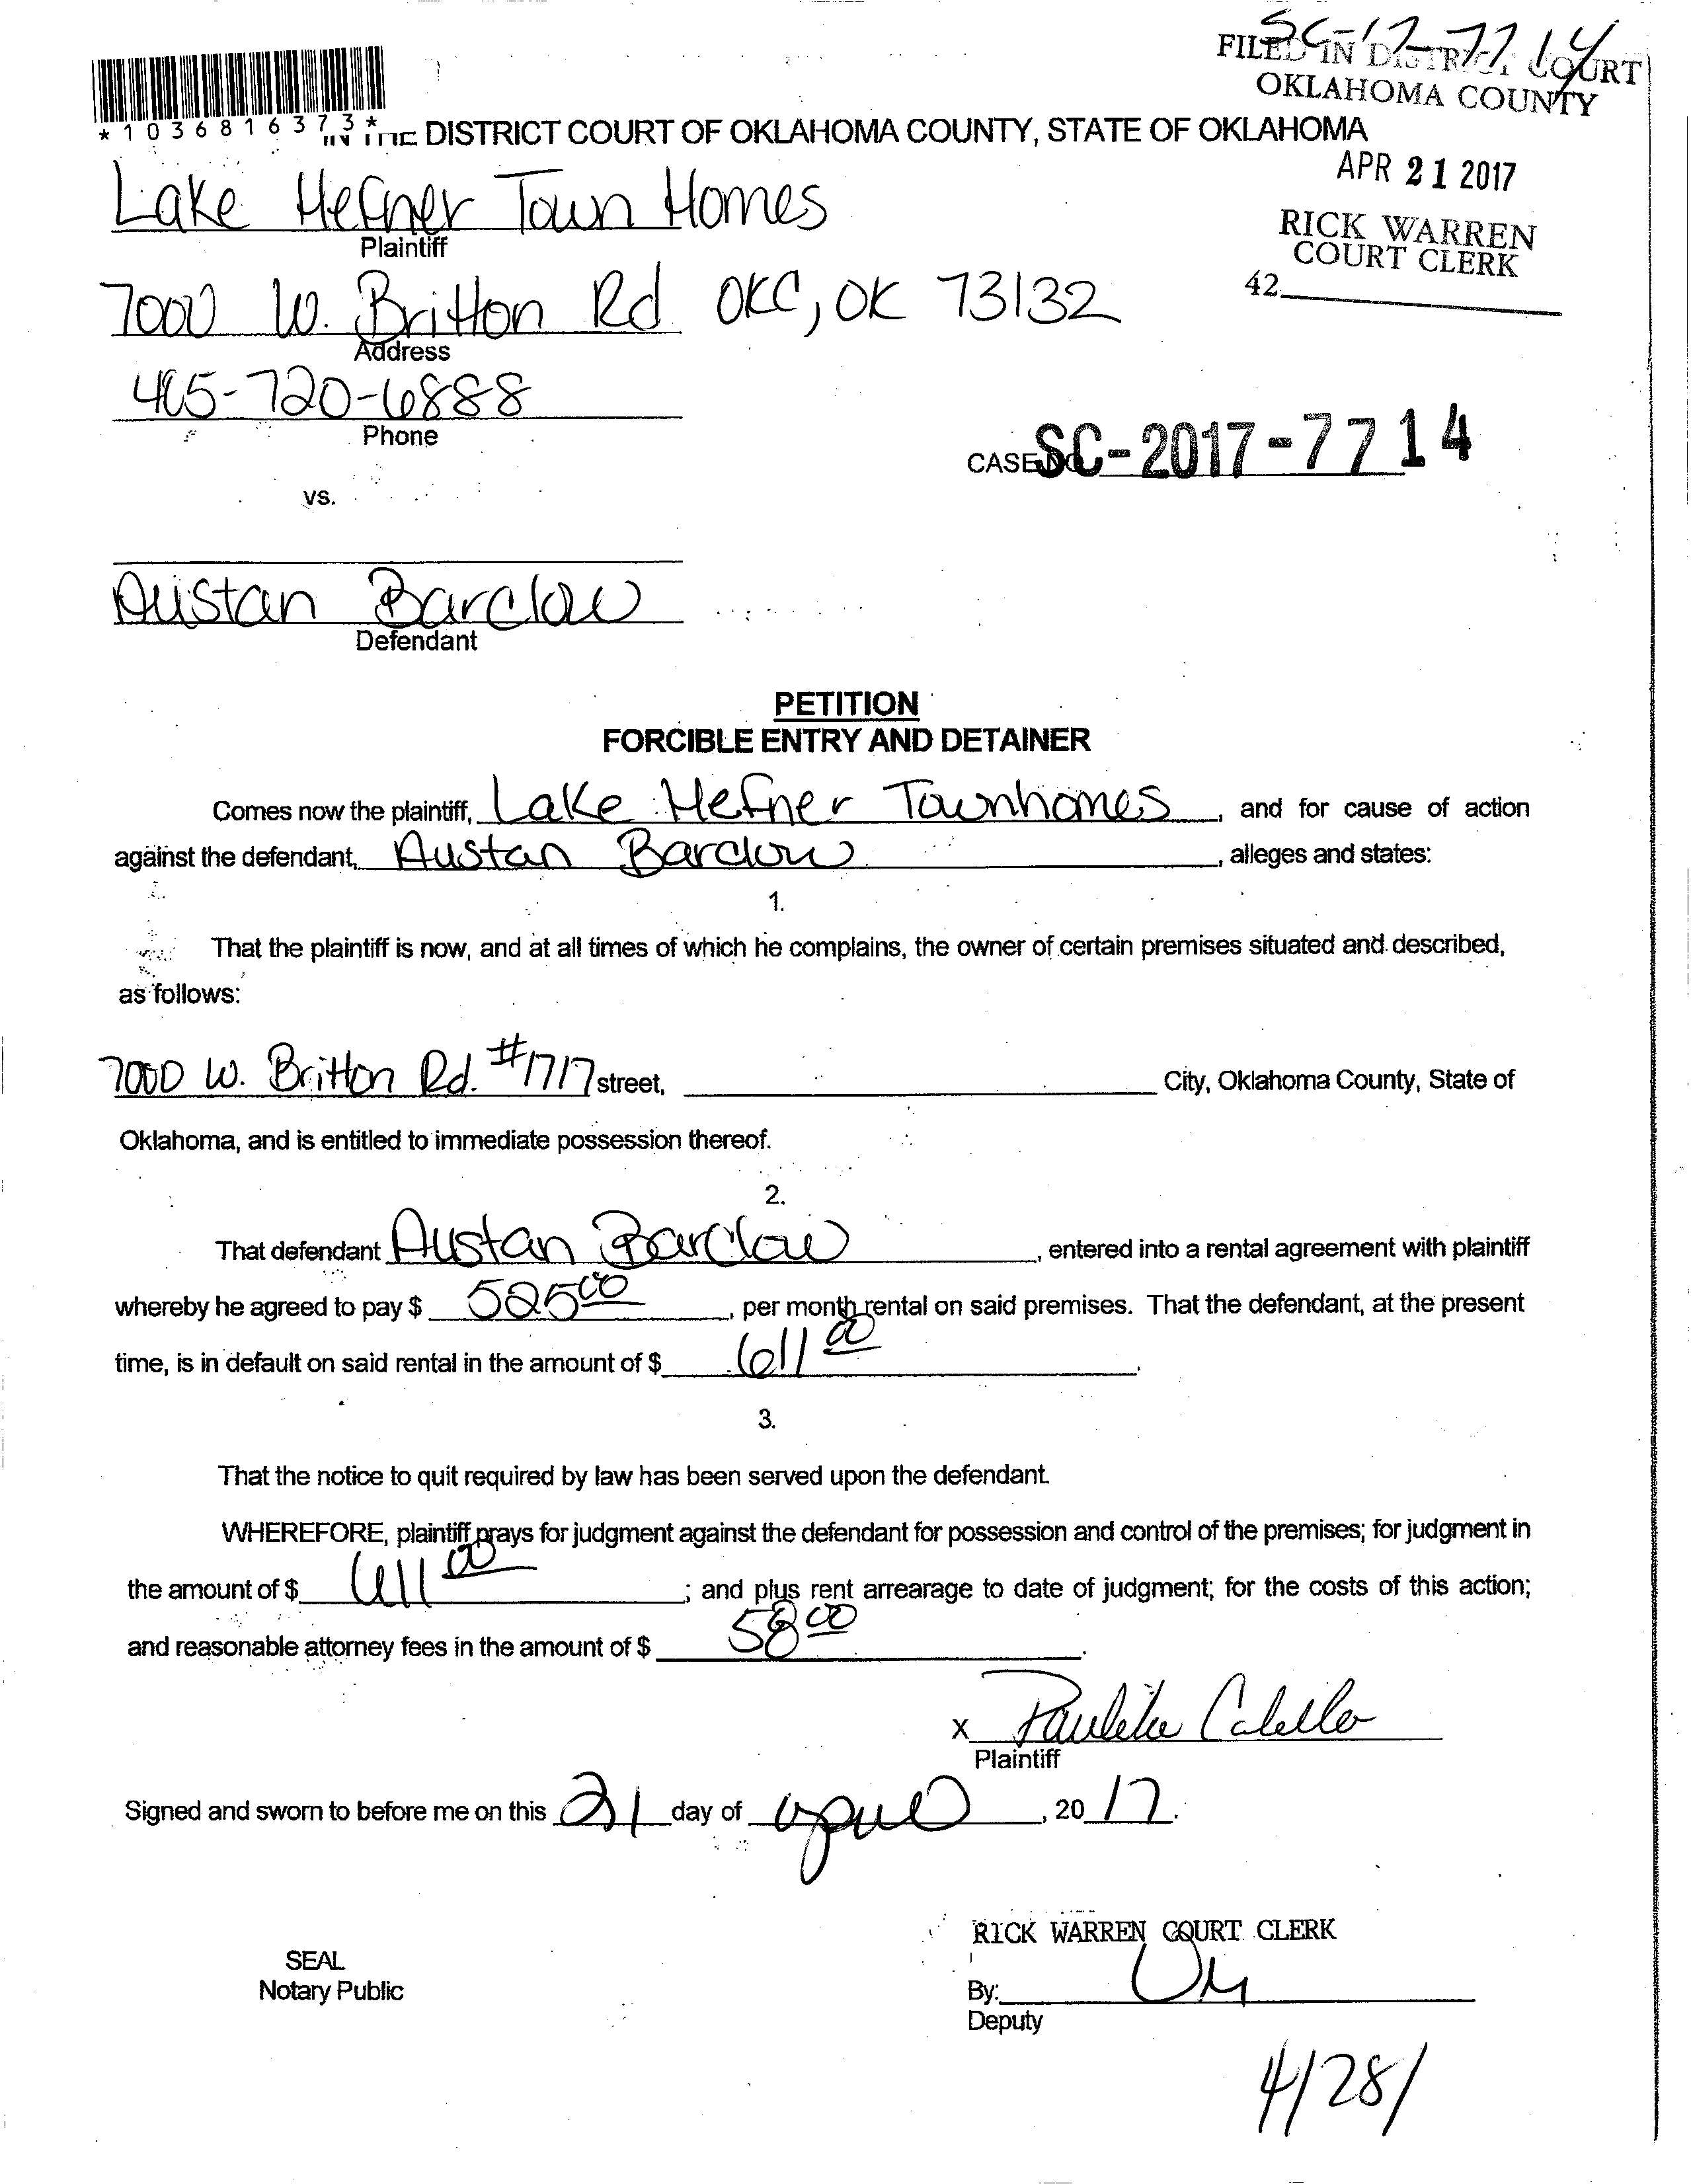 SC-17-7714
FILED IN DISTRICT COURT
OKLAHOMA COUNTY
*1036816373*
IN THE DISTRICT COURT OF OKLAHOMA COUNTY, STATE OF OKLAHOMA
APR 21 2017
Lake Hefner Town Homes
Plaintiff
RICK WARREN
COURT CLERK
42
7000 W. Britton Rd OKC, OK 73132
Address
405-720-6888
Phone
CASE NO. SC-2017-7714
vs.
Austan Barclow
Defendant
PETITION
FORCIBLE ENTRY AND DETAINER
Comes now the plaintiff, Lake Hefner Townhomes, and for cause of action
against the defendant, Austan Barclow, alleges and states:
1.
That the plaintiff is now, and at all times of which he complains, the owner of certain premises situated and described,
as follows:
7000 W. Britton Rd. #1717 street, City, Oklahoma County, State of
Oklahoma, and is entitled to immediate possession thereof.
2.
That defendant Austan Barclow, entered into a rental agreement with plaintiff
whereby he agreed to pay $ 525 00, per month rental on said premises. That the defendant, at the present
time, is in default on said rental in the amount of $ 611 00.
3.
That the notice to quit required by law has been served upon the defendant.
WHEREFORE, plaintiff prays for judgment against the defendant for possession and control of the premises; for judgment in
the amount of $ 611 00; and plus rent arrearage to date of judgment; for the costs of this action;
and reasonable attorney fees in the amount of $ 58 00.
x
Plaintiff
Signed and sworn to before me on this 21 day of april, 20 17.
RICK WARREN COURT CLERK
SEAL
Notary Public
By:
Deputy
4/28/